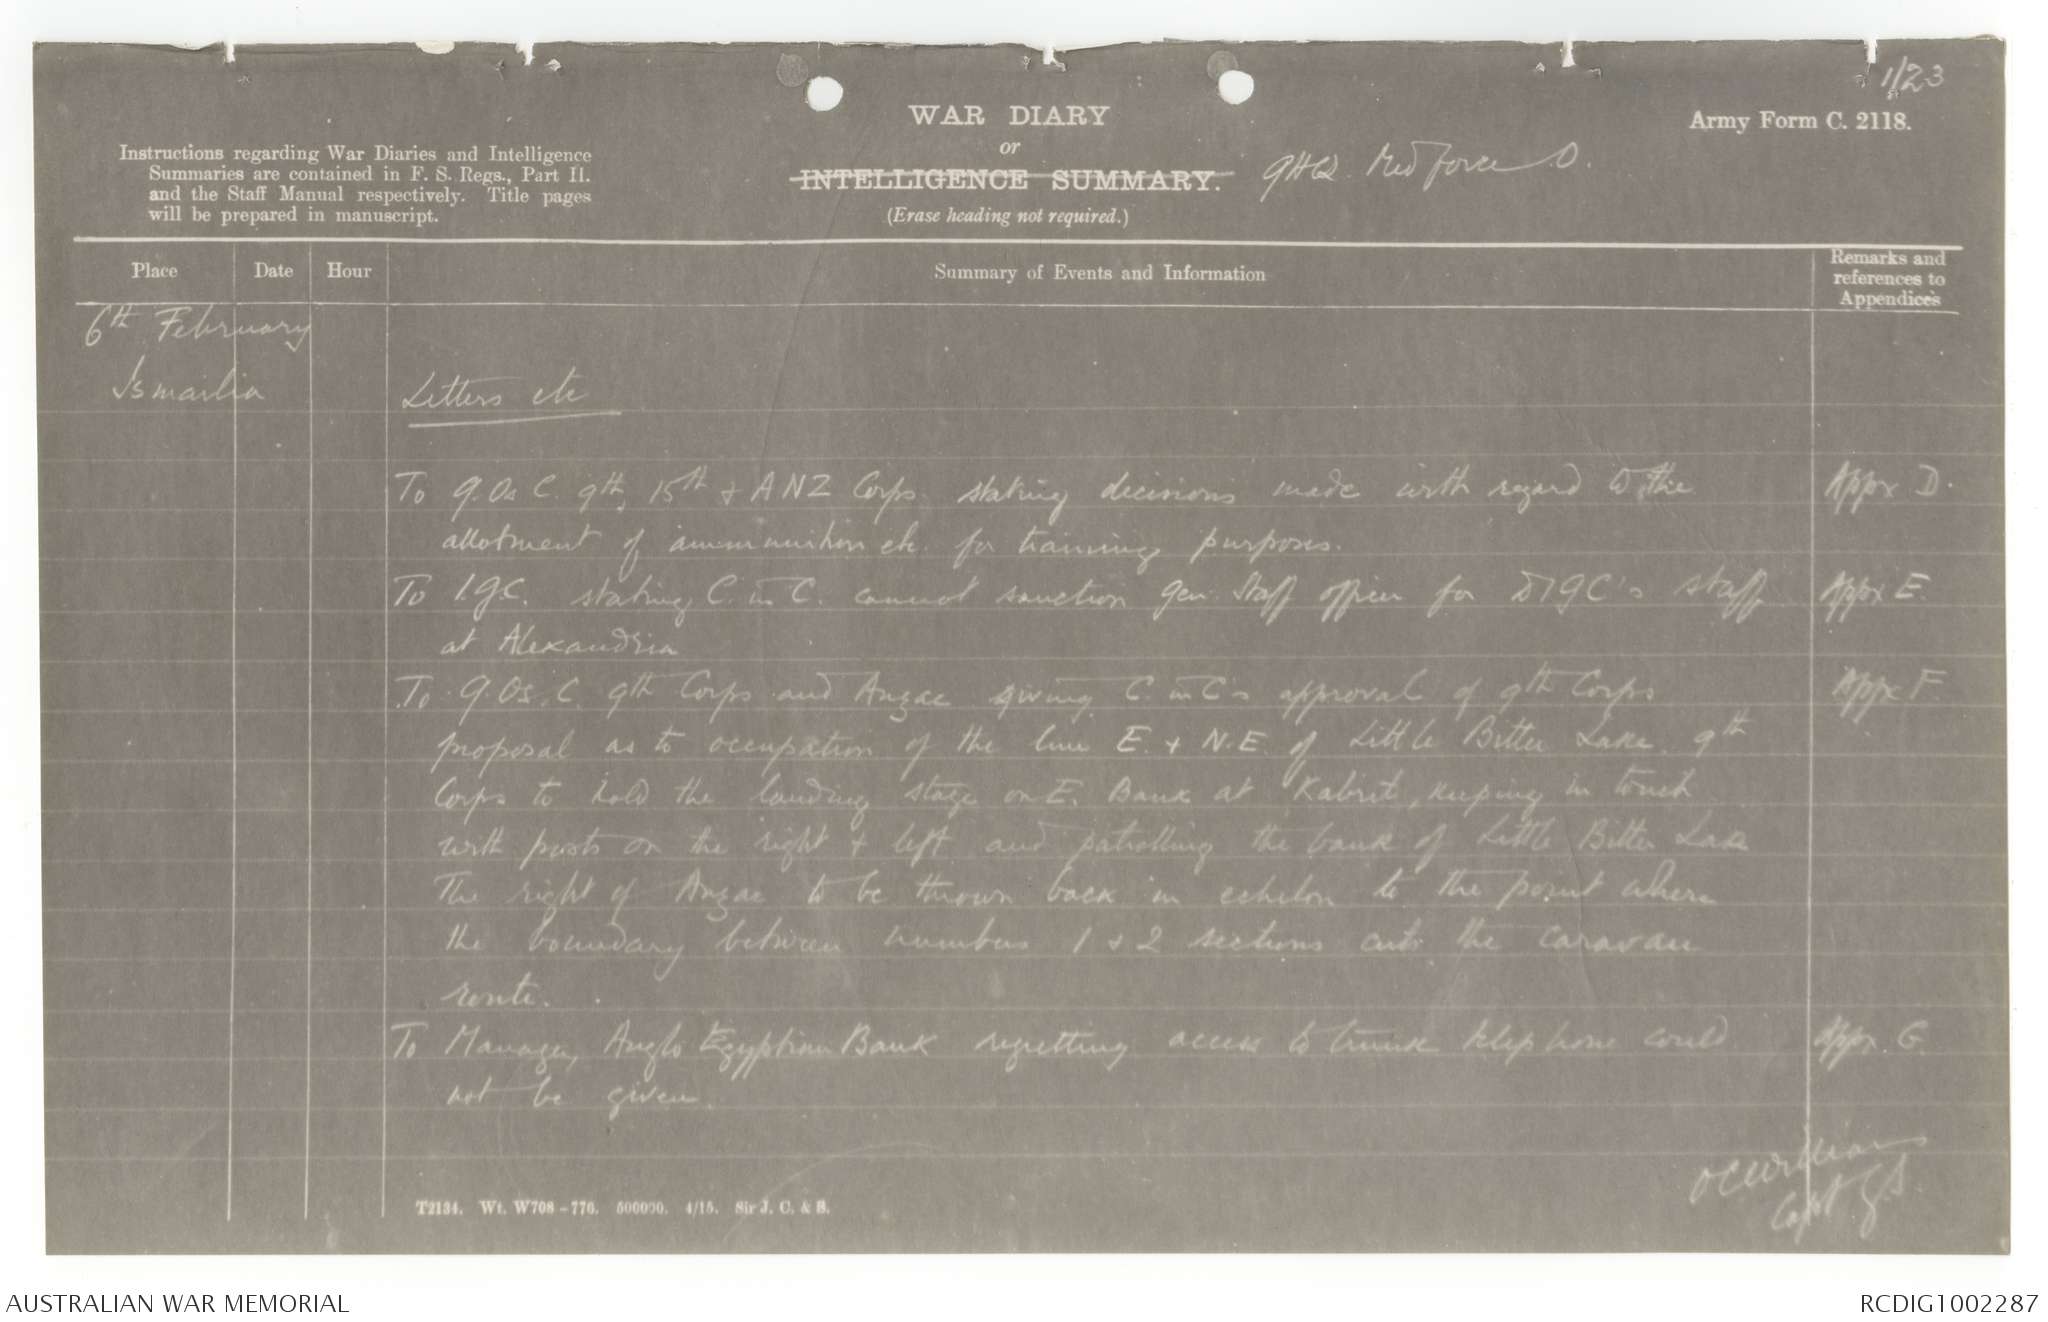 1/23
WAR DIARY
or
INTELLIGENCE SUMMARY.
(Erase heading not required.)
GHQ. Med Force O.
Army Form C. 2118.
Instructions regarding War Diaries and Intelligence
Summaries are contained in F. S. Regs., Part II.
and the Staff Manual respectively. Title pages
will be prepared in manuscript.
Place
Date
Hour
Summary of Events and Information
Remarks and
references to
Appendices
6th February
Ismailia
Letters etc
To G.Os C. 9th, 15th & ANZ Corps. stating decisions made with regard to the Appx D.
allotment of ammunition etc. for training purposes.
To I.G.C. stating C. in C. cannot sanction Gen. Staff officer for DIGC's staff Appx E.
at Alexandria
To G.Os.C. 9th Corps and Anzac giving C. in C's approval of 9th Corps Appx F.
proposal as to occupation of the line E. & N.E. of Little Bitter Lake. 9th
Corps to hold the landing stage on E. Bank at Kabrit, keeping in touch
with posts on the right & left and patrolling the bank of Little Bitter Lake
The right of Anzac to be thrown back in echelon to the point where
the boundary between numbers 1 & 2 sections cuts the caravan
route.
To Manager, Anglo Egyptian Bank regretting access to trunk telephone could Appx. G.
not be given.
OCWilliams
Capt GS.
T2134. Wt. W708-776. 500000. 4/15. Sir J. C. & S.
AUSTRALIAN WAR MEMORIAL
RCDIG1002287